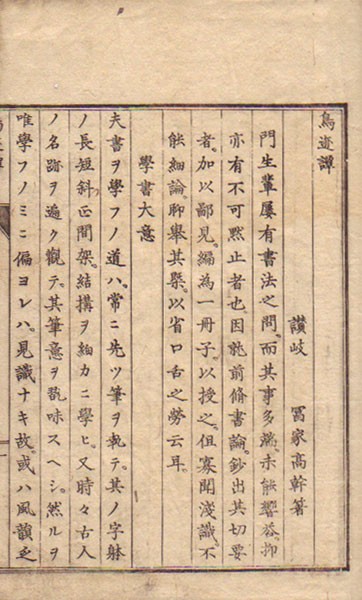 鳥迹譚
讃岐 冨家高幹著
門生輩屢有書法之問。而其事多端。未能響答。抑
亦有不可黙止者也。因就前脩書論。鈔出其切要
者。加以鄙見。編為一冊子。以授之。但寡聞淺識。不
能細論。聊舉其槩。以省口舌之勞云耳。
學書大意
夫書ヲ學フノ道ハ。常ニ先ツ筆ヲ執テ。其ノ字躰
ノ長短斜正間架。結構ヲ細カニ學ヒ。又時々古人
ノ名跡ヲ遍ク觀テ。其筆意ヲ翫味スヘシ。然ルヲ
唯學フノミニ偏ヨレハ。見識ナキ故。或ハ風韻乏